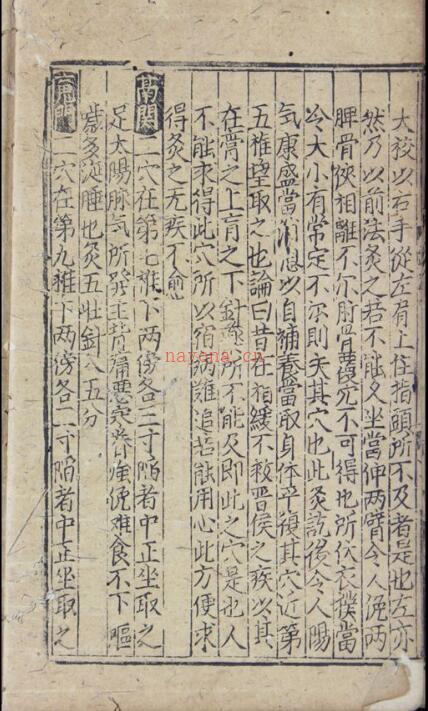 大祾以右手從左肩上住指頭所不及者是也左亦
然乃以前法灸之若不能久坐當伸兩臂令人挽兩
胛骨使相離不尔胛骨覆穴不可得也所伏衣襆當
令大小有常定不尔則失其穴也此灸訖後令人陽
氣康盛當消息以自補養當取身体平復其穴近第
五椎望取之也論曰昔在秦緩不救晉侯之疾以其
在膏之上肓之下針所不能及即此之穴是也人
不能求得此穴所以宿病難追若能用心此方便求
得灸之无疾不愈
二穴在第七椎下兩傍各三寸陷者中正坐取之
足太陽脉氣所發主背痛惡寒脊強俛難食不下嘔
多涎唾也灸五壮針入五分
二穴在第九椎下兩傍各三寸陷者中正坐取之
nayona.cn